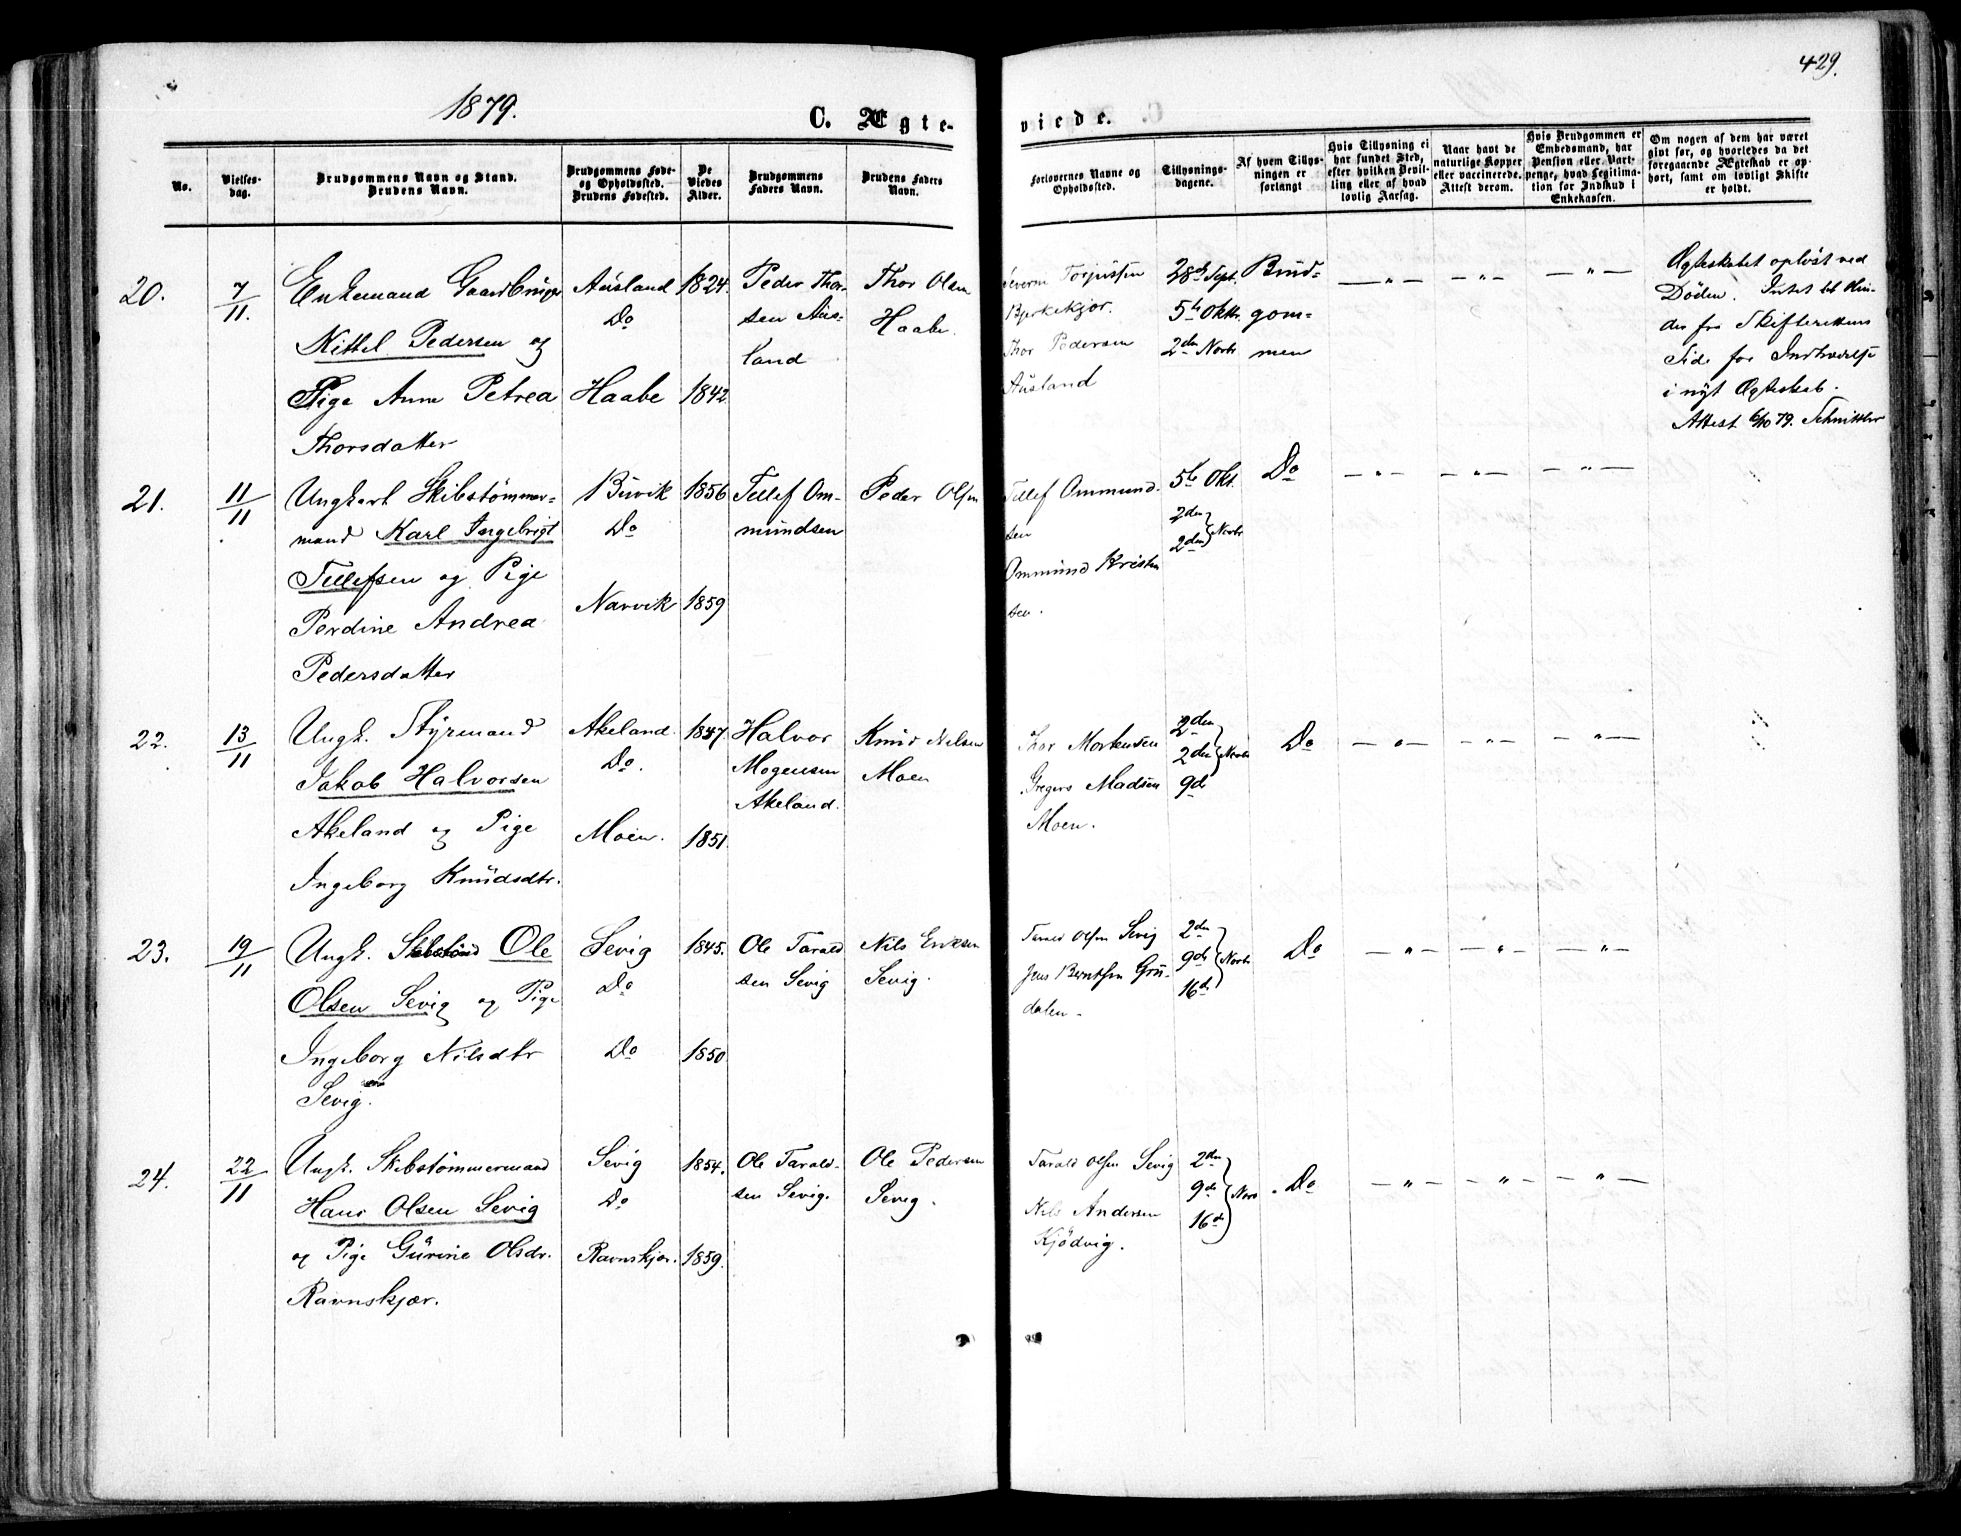 429.
1879.
C. Ægte-
viede.
No.
Vielses-
dag.
Brudgommens Navn og Stand.
Brudens Navn.
Brudgommens Føde-
og Opholdssted.
Brudens Fødested.
De
Viedes
Alder.
Brudgommens
Faders Navn.
Brudens Faders
Navn.
Forlovernes Navne og
Opholdssted.
Tillysnings-
dagene.
Af hvem Tillys-
ningen er
forlangt
Hvis Tillysning ei
har fundet Sted,
efter hvilken Bevil-
ling eller af hvad
lovlig Aarsag.
Naar havt de
naturlige Kopper
eller vaccinerede.
Attest derom.
Hvis Brudgommen er
Embedsmand, har
Pension eller Vart-
penge, hvad Legitima-
tion for Indskud i
Enkekassen.
Om nogen af dem har været
givt før, og hvorledes da det
foregaaende Ægteskab er op-
hørt, samt om lovligt Skifte
er holdt.
20.
7/11.
Enkemand Gaardbruger
Kittel Pedersen og
Pige Anne Petrea
Thorsdatter
Ausland
Do
Haabe
1824.
1842.
Peder Thor-
sen Aus-
land
Thor Olsen
Haabe.
Severin Torjussen
Bjerkekjær.
Thor Pedersen
Ausland
28de Sept.
5te Oktr.
2den Novbr
Brud-
gom-
men
— „ —
— „ —
— „ —
Ægteskabet opløst ved
Døden. Intet til Hin-
der fra Skifterettens
Side for Indtrædelse
i nyt Ægteskab.
Attest 6/10 79. Schnitler
21.
11/11.
Ungkarl Skibstømmer-
mand Karl Ingebrigt
Tellefsen og Pige
Perdine Andrea
Pedersdatter
Buvik
Do
Narvik
1856
1859
Tellef Om-
mundsen
Peder Olsen
Tellef Ommund-
sen
Ommund Kristen
sen.
5te Okt.
2den
2den Novbr
Do
— „ —
— „ —
— „ —
22.
13/11
Ungk. Styrmand
Jakob Halvorsen
Akeland og Pige
Ingeborg Knudsdtr.
Akeland.
Do.
Moen.
1847.
1851.
Halvor
Mogensen
Akeland.
Knud Nilsen
Moen
Thor Mortensen
Gregers Madsen
Moen.
2den
2den Novbr
9de
Do
— „ —
— „ —
— „ —
23.
19/11
Ungk. Ole
Olsen Sevig og Pige
Ingeborg Nilsdtr
Sevig.
Sevig
Do
Do
1845.
1850
Ole Tarald
sen Sevig
Nils Eriksen
Sevig.
Tarald Olsen Sevig
Jens Berntsen Gru-
dalen.
2den
9de Novbr
16de
Do
— „ —
— „ —
— „ —
24.
22/11
Ungk. Skibstømmermand
Hans Olsen Sevig
og Pige Gurine Olsdr.
Ravnskjær.
Sevig
Do
Ravnskjær.
1854.
1859.
Ole Tarald-
sen Sevig.
Ole Pedersen
Sevig.
Tarald Olsen Sevig
Nils Andersen
Kjødvig.
2den
9de Novb
16de
Do
— „ —
— „ —
— „ —